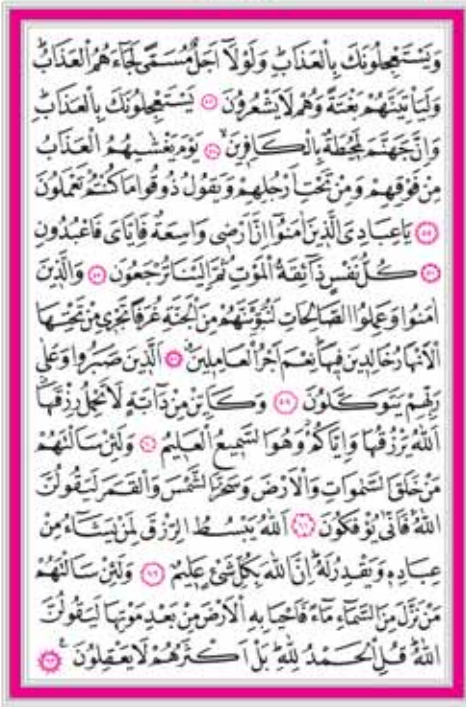 وَيَسْتَعْجِلُونَكَ بِالْعَذَابِۜ وَلَوْلَٓا اَجَلٌ مُسَمًّى لَجَٓاءَهُمُ الْعَذَابُۜ
وَلَيَأْتِيَنَّهُمْ بَغْتَةً وَهُمْ لَا يَشْعُرُونَ ﴿٥٣﴾ يَسْتَعْجِلُونَكَ بِالْعَذَابِۜ
وَاِنَّ جَهَنَّمَ لَمُح۪يطَةٌ بِالْكَافِر۪ينَۙ ﴿٥٤﴾ يَوْمَ يَغْشٰيهُمُ الْعَذَابُ
مِنْ فَوْقِهِمْ وَمِنْ تَحْتِ اَرْجُلِهِمْ وَيَقُولُ ذُوقُوا مَا كُنْتُمْ تَعْمَلُونَ
﴿٥٥﴾ يَا عِبَادِيَ الَّذ۪ينَ اٰمَنُٓوا اِنَّ اَرْض۪ي وَاسِعَةٌ فَاِيَّايَ فَاعْبُدُونِ
﴿٥٦﴾ كُلُّ نَفْسٍ ذَٓائِقَةُ الْمَوْتِ ثُمَّ اِلَيْنَا تُرْجَعُونَ ﴿٥٧﴾ وَالَّذ۪ينَ
اٰمَنُوا وَعَمِلُوا الصَّالِحَاتِ لَنُبَوِّئَنَّهُمْ مِنَ الْجَنَّةِ غُرَفًا تَجْر۪ي مِنْ تَحْتِهَا
الْاَنْهَارُ خَالِد۪ينَ ف۪يهَاۜ نِعْمَ اَجْرُ الْعَامِل۪ينَۗ ﴿٥٨﴾ اَلَّذ۪ينَ صَبَرُوا وَعَلٰى
رَبِّهِمْ يَتَوَكَّلُونَ ﴿٥٩﴾ وَكَاَيِّنْ مِنْ دَٓابَّةٍ لَا تَحْمِلُ رِزْقَهَاۗ
اَللّٰهُ يَرْزُقُهَا وَاِيَّاكُمْۘ وَهُوَ السَّم۪يعُ الْعَل۪يمُ ﴿٦٠﴾ وَلَئِنْ سَاَلْتَهُمْ
مَنْ خَلَقَ السَّمٰوَاتِ وَالْاَرْضَ وَسَخَّرَ الشَّمْسَ وَالْقَمَرَ لَيَقُولُنَّ
اللّٰهُۚ فَاَنّٰى يُؤْفَكُونَ ﴿٦١﴾ اَللّٰهُ يَبْسُطُ الرِّزْقَ لِمَنْ يَشَٓاءُ مِنْ
عِبَادِه۪ وَيَقْدِرُ لَهُۜ اِنَّ اللّٰهَ بِكُلِّ شَيْءٍ عَل۪يمٌ ﴿٦٢﴾ وَلَئِنْ سَاَلْتَهُمْ
مَنْ نَزَّلَ مِنَ السَّمَٓاءِ مَٓاءً فَاَحْيَا بِهِ الْاَرْضَ مِنْ بَعْدِ مَوْتِهَا لَيَقُولُنَّ
اللّٰهُۜ قُلِ الْحَمْدُ لِلّٰهِۜ بَلْ اَكْثَرُهُمْ لَا يَعْقِلُونَ۟ ﴿٦٣﴾